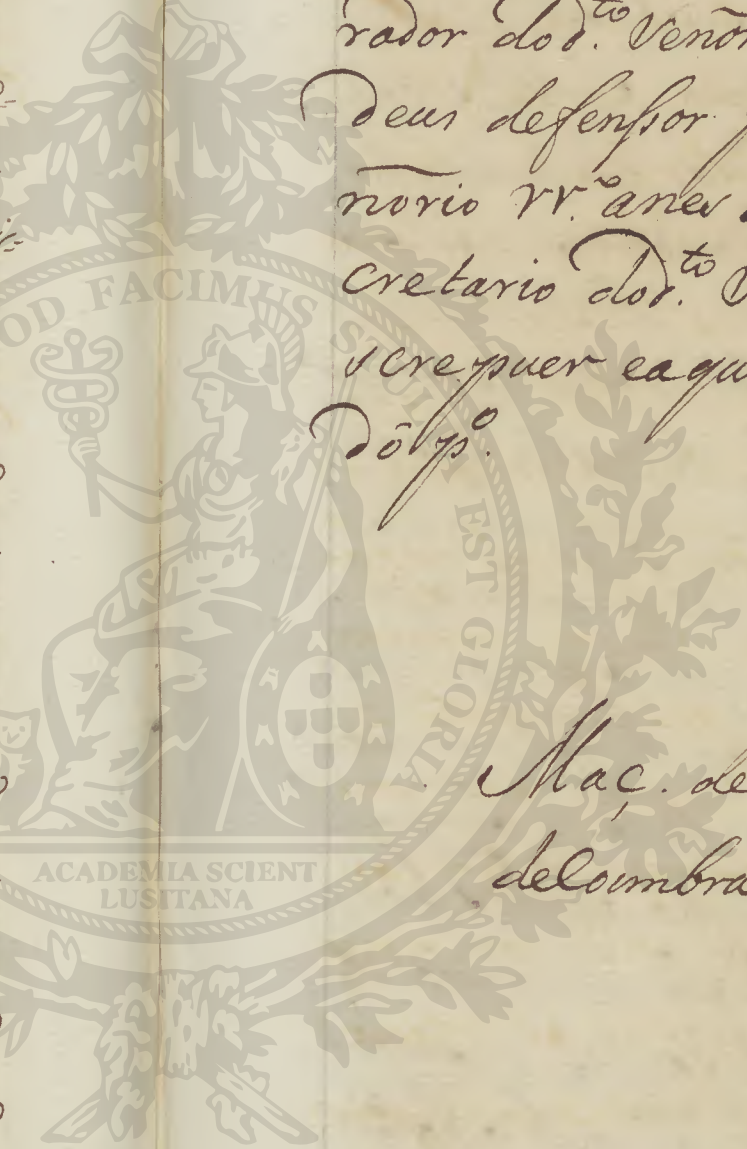 rador dod.to Venõr
deus defenssor p
nõrio rr.o anes
cretario dod.to V
screpuer eaqu
dõ p.o
Maç. de
deCoimbra
OD FACIMUS STULTA EST GLORIA
ACADEMIA SCIENT
LUSITANA